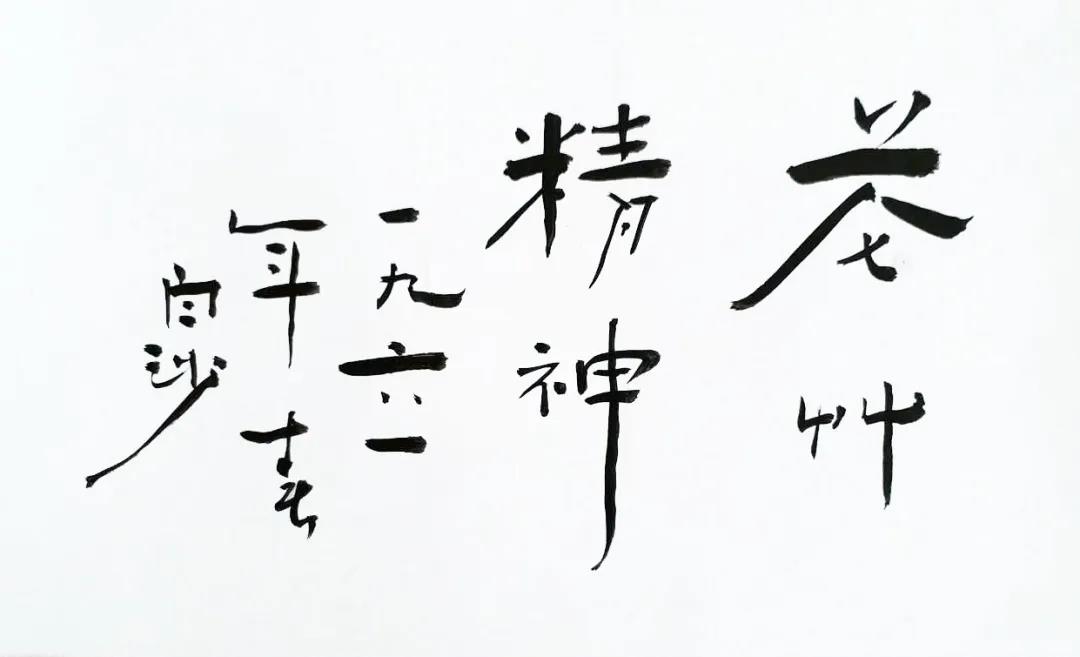 花艸
精神
一九六一
年春
白沙